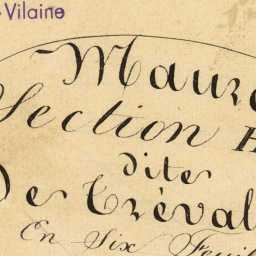 -Vilaine
Maur
Section
dite
De Tréval
En Six Feuil